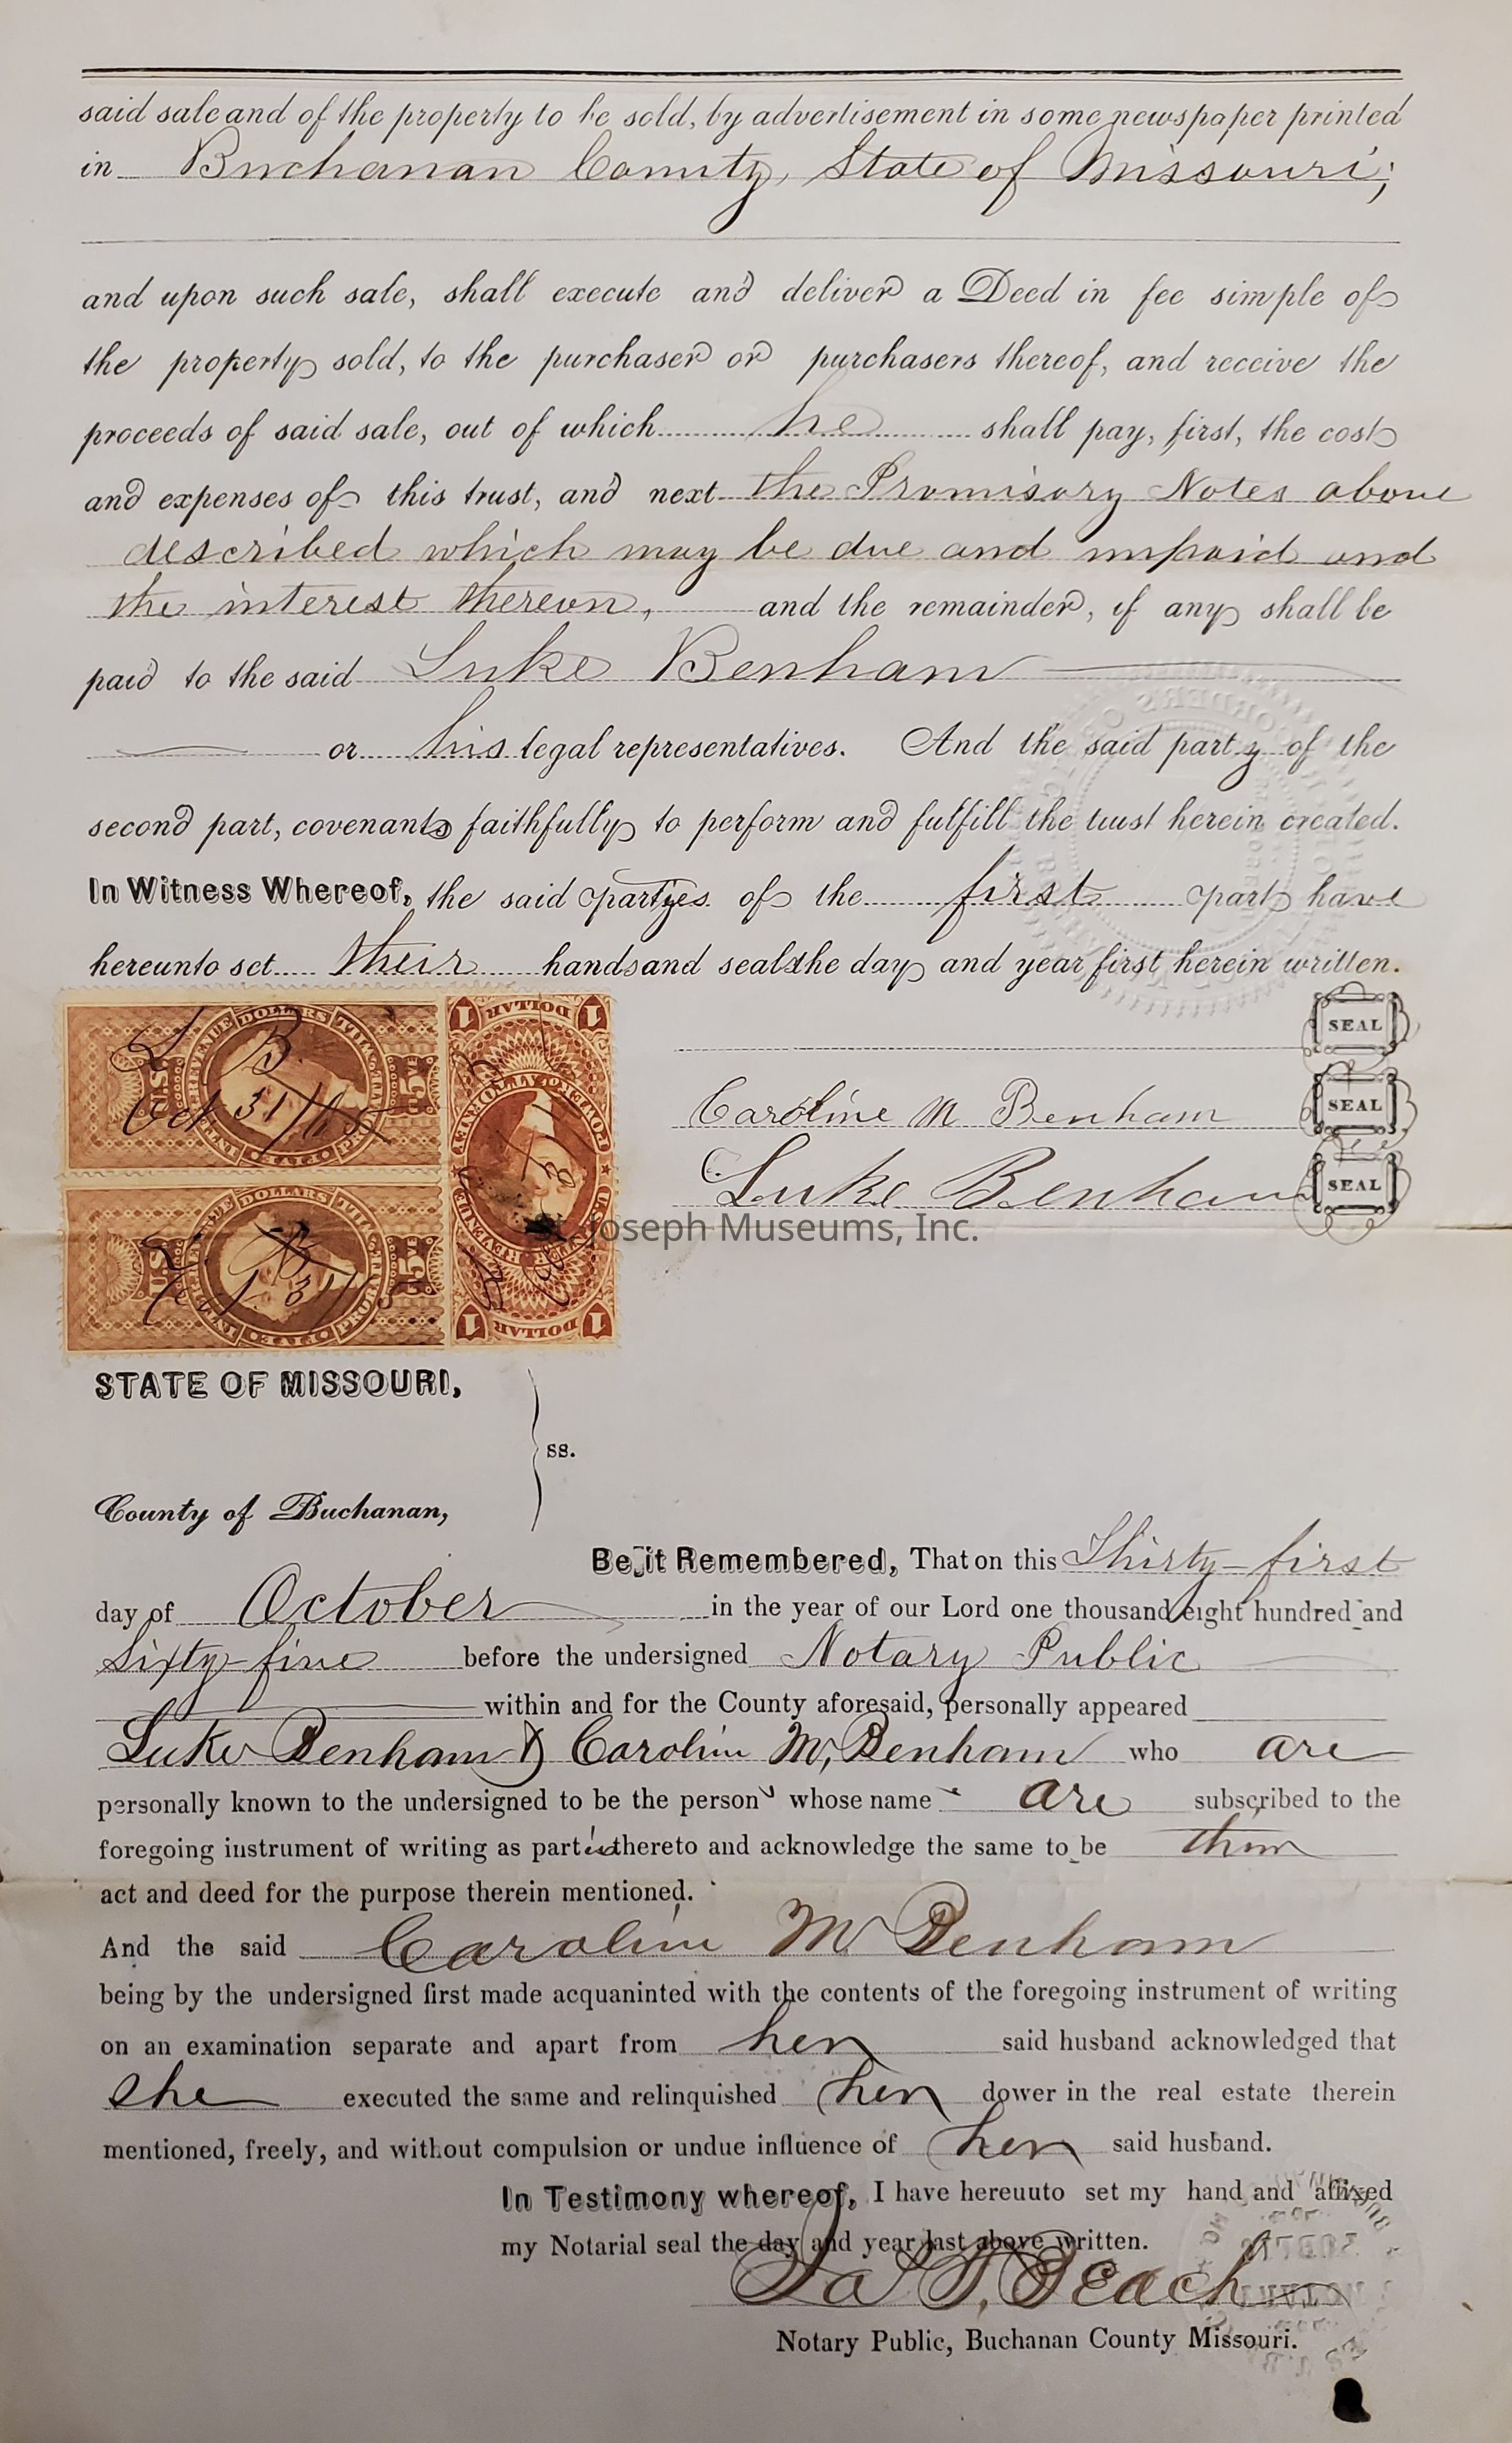 said sale and of the property to be sold, by advertisement in some newspaper printed
in Buchanan County, State of Missouri;
and upon such sale, shall execute and deliver a Deed in fee simple of
the property sold, to the purchaser or purchasers thereof, and receive the
proceeds of said sale, out of which he shall pay, first, the cost
and expenses of this trust, and next the Promisory Notes above
described which may be due and unpaid and
the interest thereon, and the remainder, if any shall be
paid to the said Luke Benham
or his legal representatives. And the said party of the
second part, covenants faithfully to perform and fulfill the trust herein created.
In Witness Whereof, the said parties of the first part have
hereunto set their hands and seals the day and year first herein written.
SEAL
Caroline M Benham SEAL
Luke Benham SEAL
L B. Oct 31/65
U.S. INTER. REVENUE FIVE DOLLARS PROBATE OF WILL 5
1 DOLLAR 1
POWER OF ATTORNEY
U.S. INTER. REVENUE
St. Joseph Museums, Inc.
STATE OF MISSOURI,
ss.
County of Buchanan,
Be it Remembered, That on this Thirty-first
day of October in the year of our Lord one thousand eight hundred and
sixty-five before the undersigned Notary Public
within and for the County aforesaid, personally appeared
Luke Benham & Caroline M, Benham who are
personally known to the undersigned to be the persons whose names are subscribed to the
foregoing instrument of writing as parties thereto and acknowledge the same to be their
act and deed for the purpose therein mentioned.
And the said Caroline M Benham
being by the undersigned first made acquaninted with the contents of the foregoing instrument of writing
on an examination separate and apart from her said husband acknowledged that
she executed the same and relinquished her dower in the real estate therein
mentioned, freely, and without compulsion or undue influence of her said husband.
In Testimony whereof, I have hereuuto set my hand and affixed
my Notarial seal the day and year last above written.
Beach
Notary Public, Buchanan County Missouri.